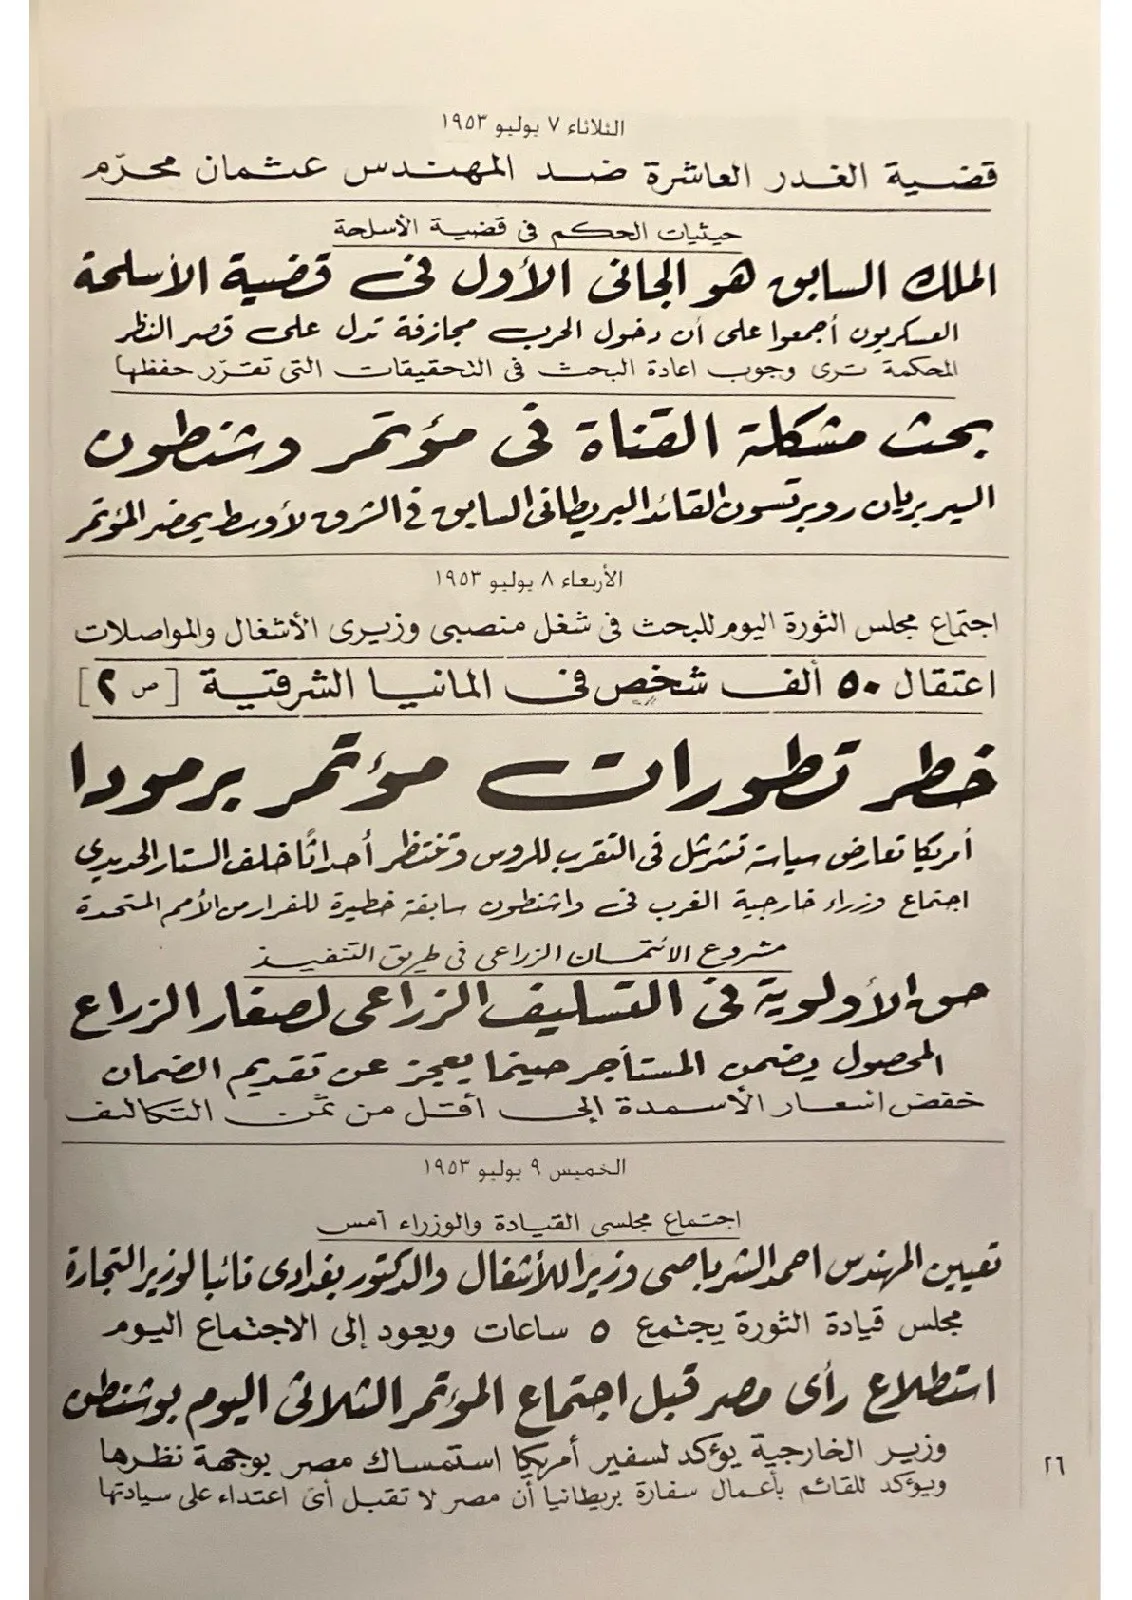 الثلاثاء ٧ يوليو ١٩٥٣
قضية الغدر العاشرة ضد المهندس عثمان محرّم
حيثيات الحكم فى قضية الأسلحة
الملك السابق هو الجانى الأول فى قضية الأسلحة
العسكريون أجمعوا على أن دخول الحرب مجازفة تدل على قصر النظر
المحكمة ترى وجوب اعادة البحث فى التحقيقات التى تقرّر حفظها
بحث مشكلة القناة فى مؤتمر وشنطون
السير بريان روبرتسون القائد البريطانى السابق فى الشرق لأوسط يحضر المؤتمر
الأربعاء ٨ يوليو ١٩٥٣
اجتماع مجلس الثورة اليوم للبحث فى شغل منصبى وزيرى الأشغال والمواصلات
اعتقال ٥٠ ألف شخص فى المانيا الشرقية [ ص ٢ ]
خطر تطورات مؤتمر برمودا
أمريكا تعارض سياسة تشرشل فى التقرب للروس وتنتظر أحداثًا خلف الستار الحديدى
اجتماع وزراء خارجية الغرب فى واشنطون سابقة خطيرة للفرار من الأمم المتحدة
مشروع الائتمان الزراعى فى طريق التنفيذ
حق الأولوية فى التسليف الزراعى لصغار الزراع
المحصول يضمن المستأجر حينما يعجز عن تقديم الضمان
خفض اسعار الأسمدة إلى أقل من ثمن التكاليف
الخميس ٩ يوليو ١٩٥٣
اجتماع مجلسى القيادة والوزراء أمس
تعيين المهندس احمد الشرباصى وزيرا للأشغال والدكتور بغدادى نائبا لوزير التجارة
مجلس قيادة الثورة يجتمع ٥ ساعات ويعود إلى الاجتماع اليوم
استطلاع رأى مصر قبل اجتماع المؤتمر الثلاثى اليوم بوشنطن
وزير الخارجية يؤكد لسفير أمريكا استمساك مصر بوجهة نظرها
ويؤكد للقائم بأعمال سفارة بريطانيا أن مصر لا تقبل أى اعتداء على سيادتها
٢٦